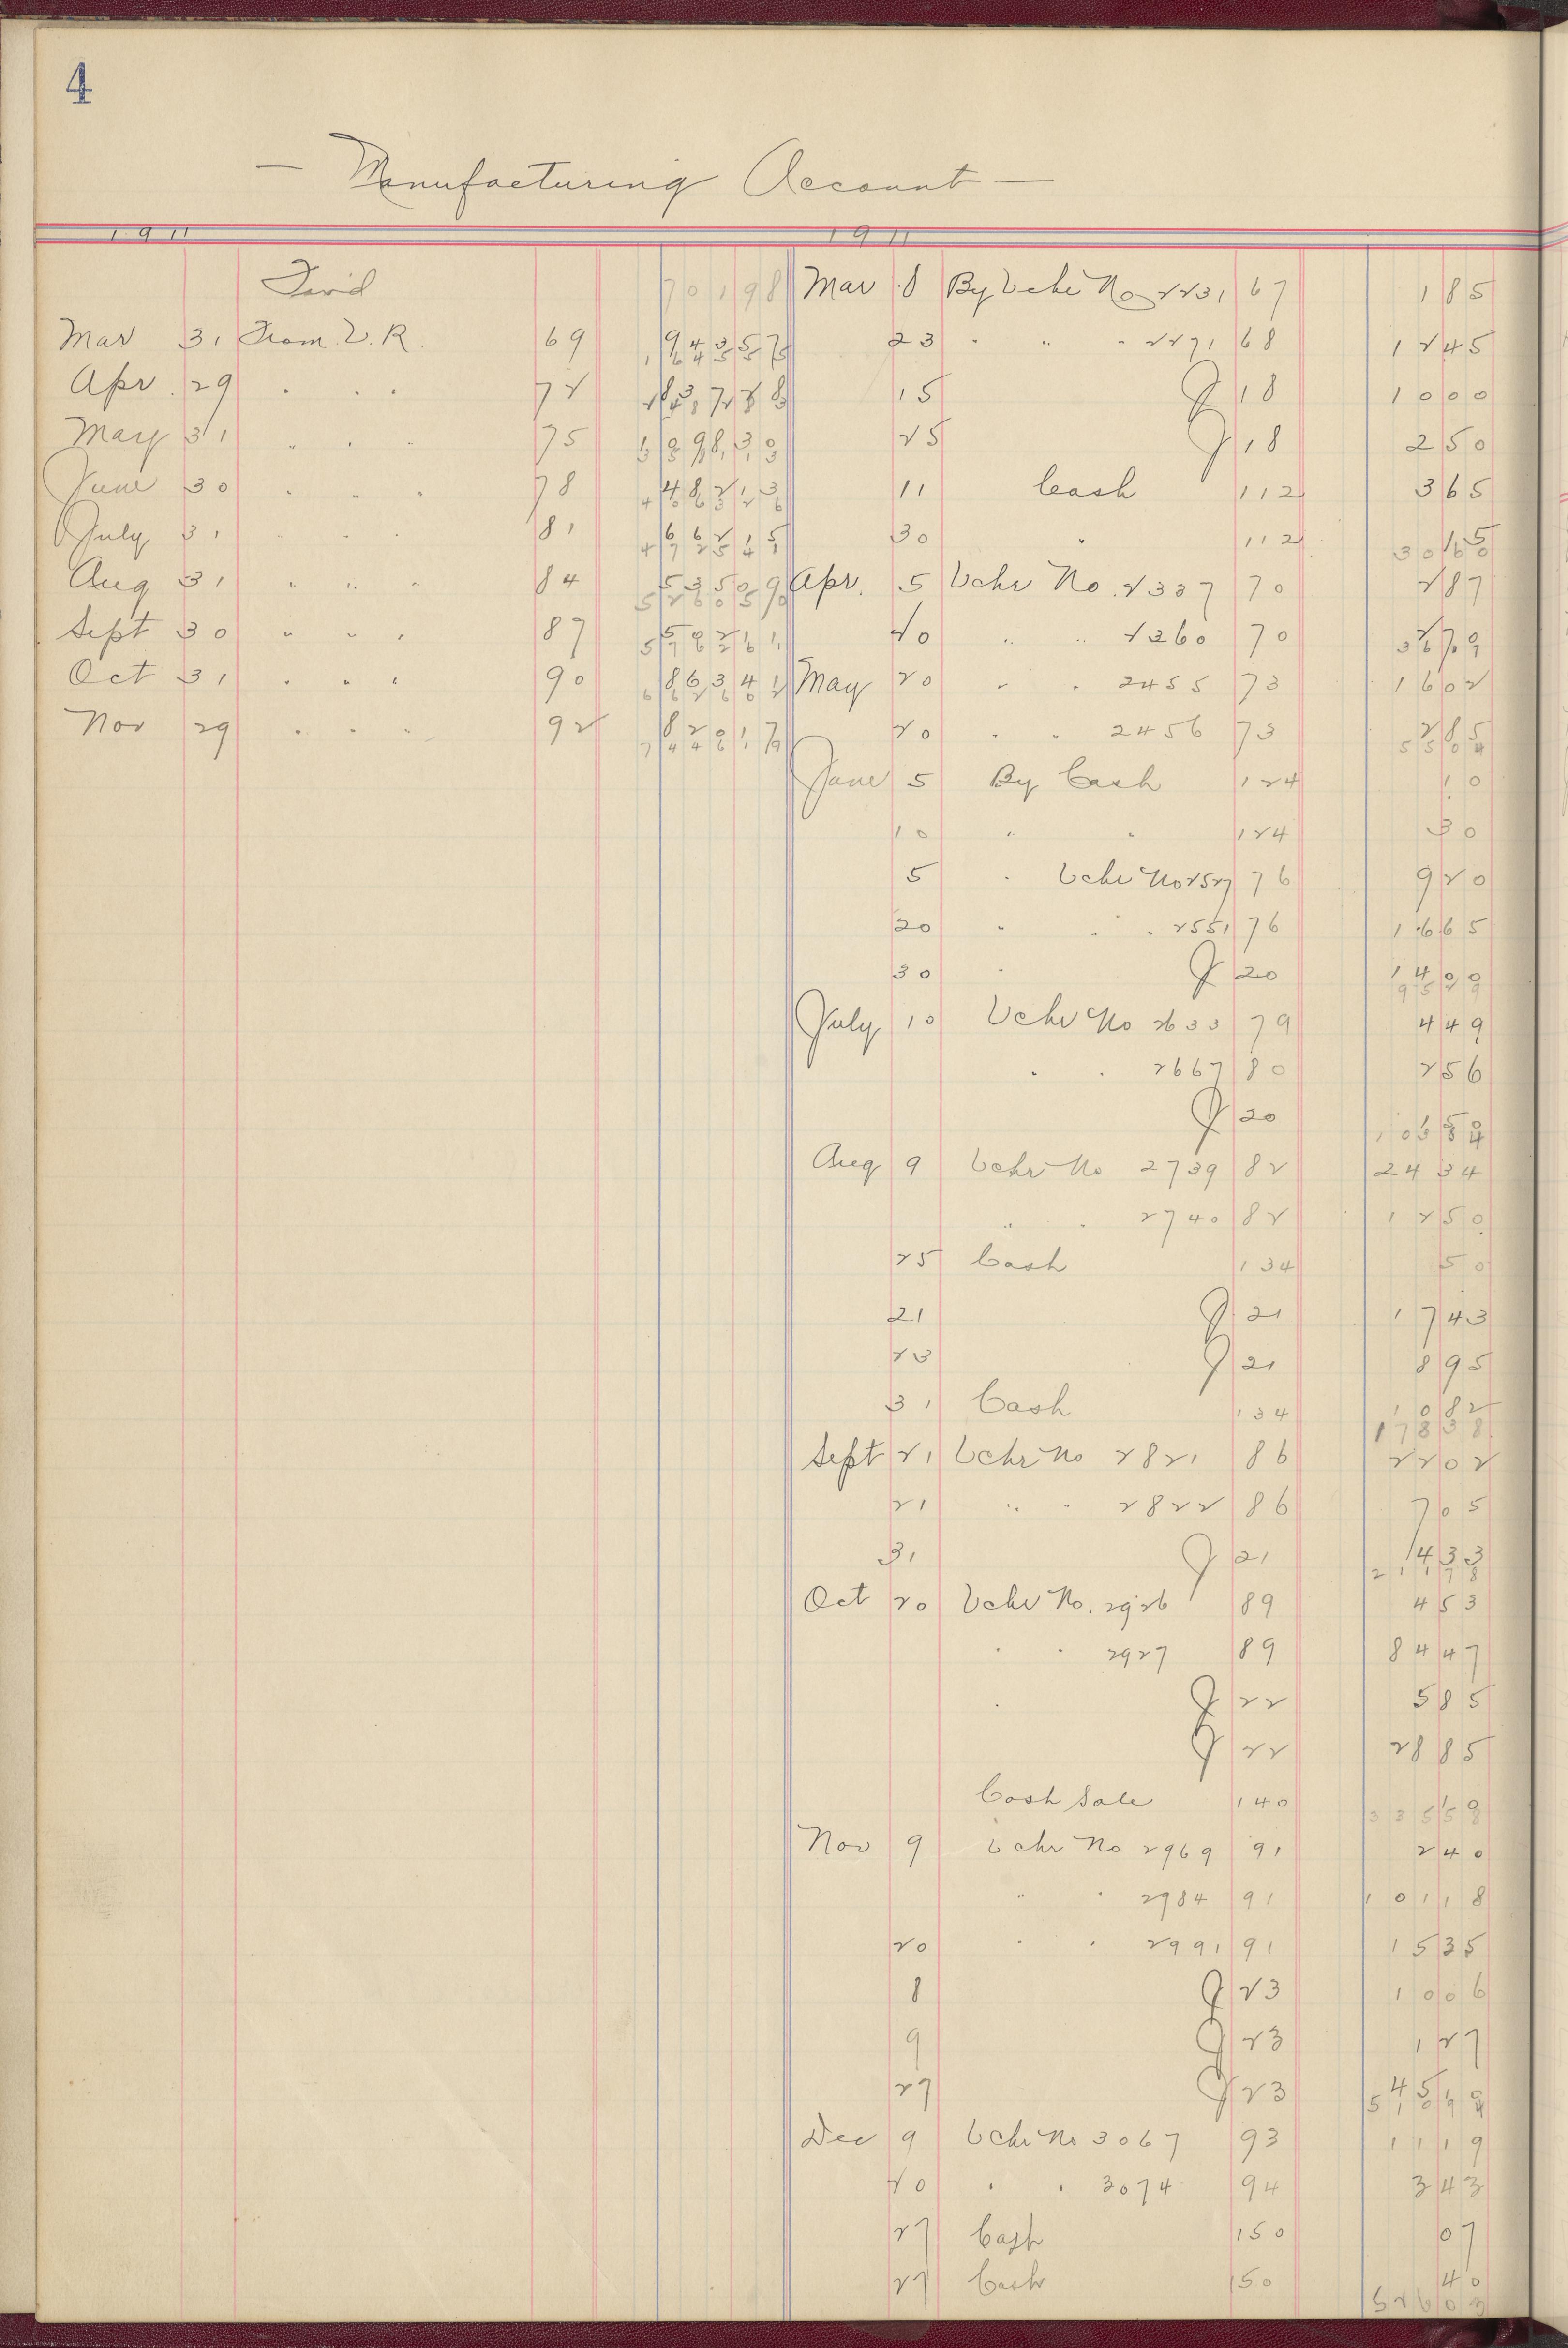 4
— Manufacturing Account —
1911
70198
Mar 31 From V. R. 69 94357
16455
Apr. 29 " " " 72 83728
May 31 " " " 75 109830
June 30 " " " 78 48213
40636
July 31 " " " 81 66215
47251
Aug 31 " " " 84 53509
52605
Sept 30 " " " 87 50211
57626
Oct 31 " " " 90 86341
66260
Nov 29 " " " 92 82017
74461
1911
Mar 8 By Vchr No 2231 67 185
23 " " " 2271 68 1245
15 J 18 1000
25 J 18 250
11 Cash 112 365
30 " 112 15
3060
Apr. 5 Vchr No. 2337 70 287
20 " " 2360 70 270
3617
May 20 " " 2455 73 1602
20 " " 2456 73 285
5504
June 5 By Cash 124 10
10 " " 124 30
5 " Vchr No 2527 76 920
20 " " " 2551 76 1665
30 " J 20 1400
9529
July 10 Vchr No 2633 79 449
" " 2667 80 256
J 20 150
10384
Aug 9 Vchr No 2739 82 2434
" " 2740 82 1250
25 Cash 134 50
21 J 21 1743
23 J 21 895
31 Cash 134 1082
17838
Sept 21 Vchr No 2821 86 2202
21 " " 2822 86 705
31 J 21 433
21178
Oct 20 Vchr No. 2926 89 453
" " 2927 89 8447
" J 22 585
J 22 2885
Cash Sale 140 10
33558
Nov 9 Vchr No 2969 91 240
" " 2984 91 10118
20 " " 2991 91 1535
8 J 23 1006
9 J 23 127
27 J 23 4510
51094
Dec 9 Vchr No 3067 93 1119
20 " " 3074 94 343
27 Cash 150 07
27 Cash 150 40
52603